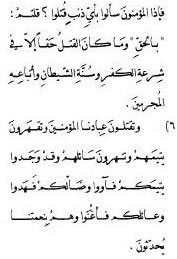 فإذا المؤمنون سألوا بأي ذنب قتلوا ؟ قلتم :
"بالحق" وما كان القتل حقا إلا في
شرعة الكفر وسنة الشيطان وأتباعه
المجرمين .
٦) وتقتلون عبادنا المؤمنين وتقهرون
يتيمهم وتنهرون سائلهم وقد وجدوا
يتيمكم فآووا وضالكم فهدوا
وعائلكم فأغنوا وهم بنعمتنا
يحدثون .